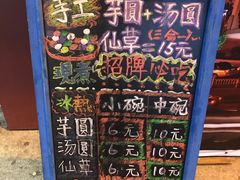 手工
芋圆+汤圆
仙草(三合一)
=15元
現煮
招牌必吃
冰粥 小碗 中碗
芋圆 6元 10元
汤圆 6元 10元
仙草 6元 10元